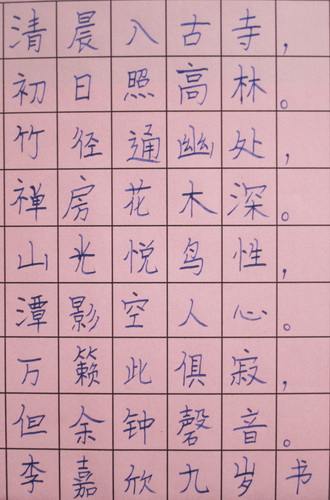 清晨入古寺，
初日照高林。
竹径通幽处，
禅房花木深。
山光悦鸟性，
潭影空人心。
万籁此俱寂，
但余钟磬音。
李嘉欣九岁书